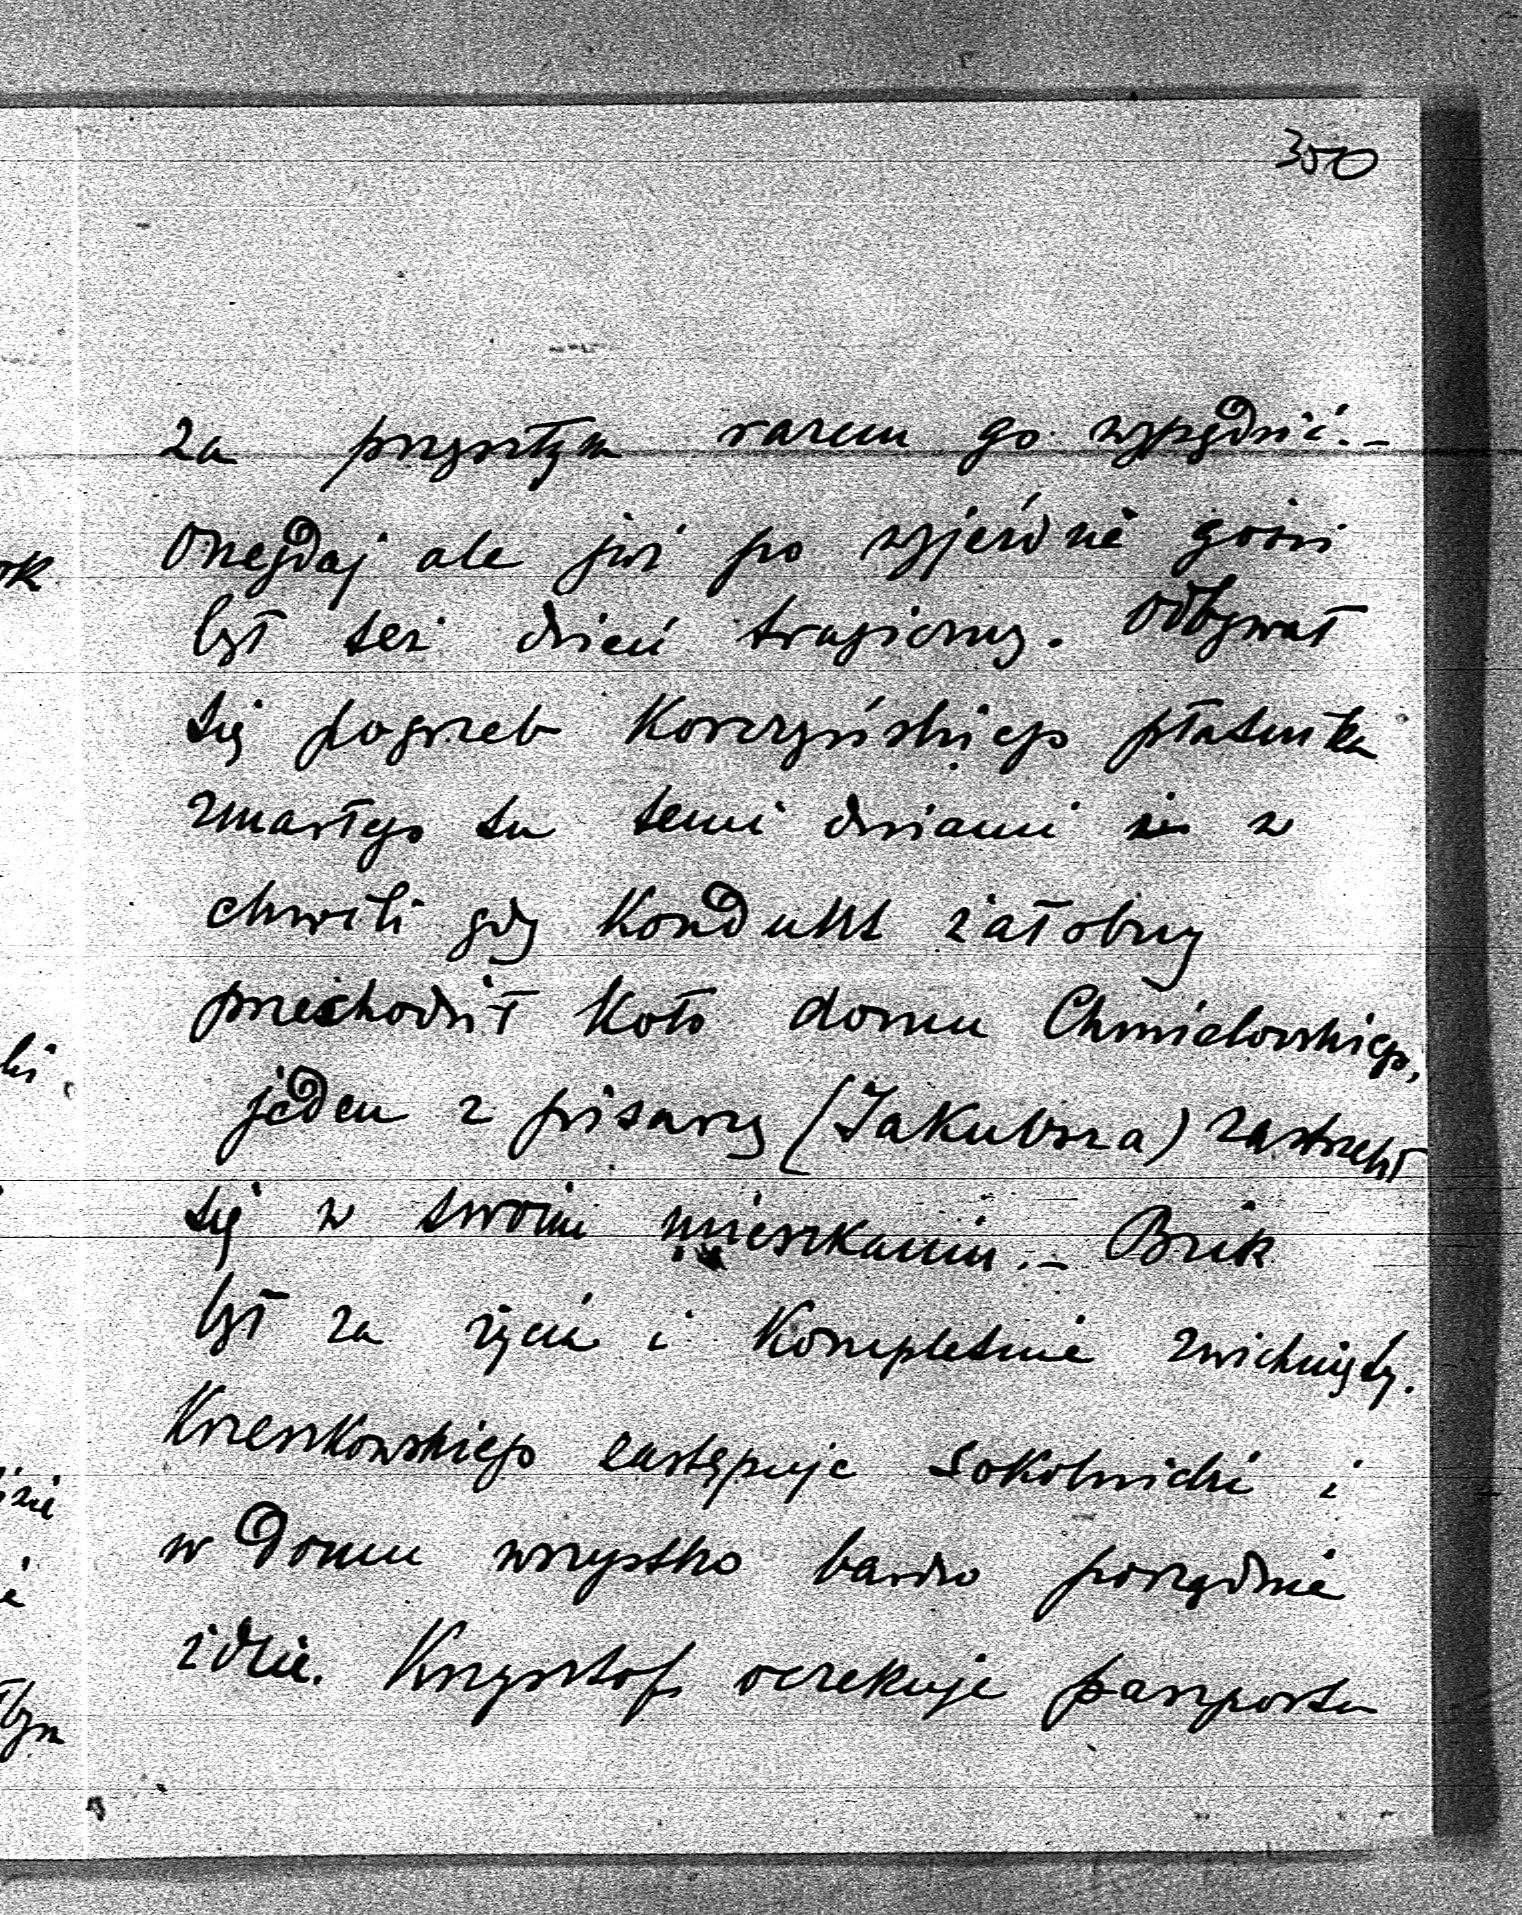 350
za przyszłym razem go wypędzić. –
Onegdaj ale już po wyjeździe gości
był też dzień tragiczny. Odbywał
się pogrzeb Korczyńskiego płatnika
zmarłego tu temi dniami i w
chwili gdy Kondukt żałobny
przechodził koło domu Chmielowskiego,
jeden z pisarzy (Jakubsza) zastrzelił
się w swoim mieszkaniu. – Bzik
był za życia i Kompletnie zwichnięty.
Krzeszkowskiego zastępuje Sokolnicki i
w Domu wszystko bardzo porządnie
idzie. Krzysztof oczekuje paszportu